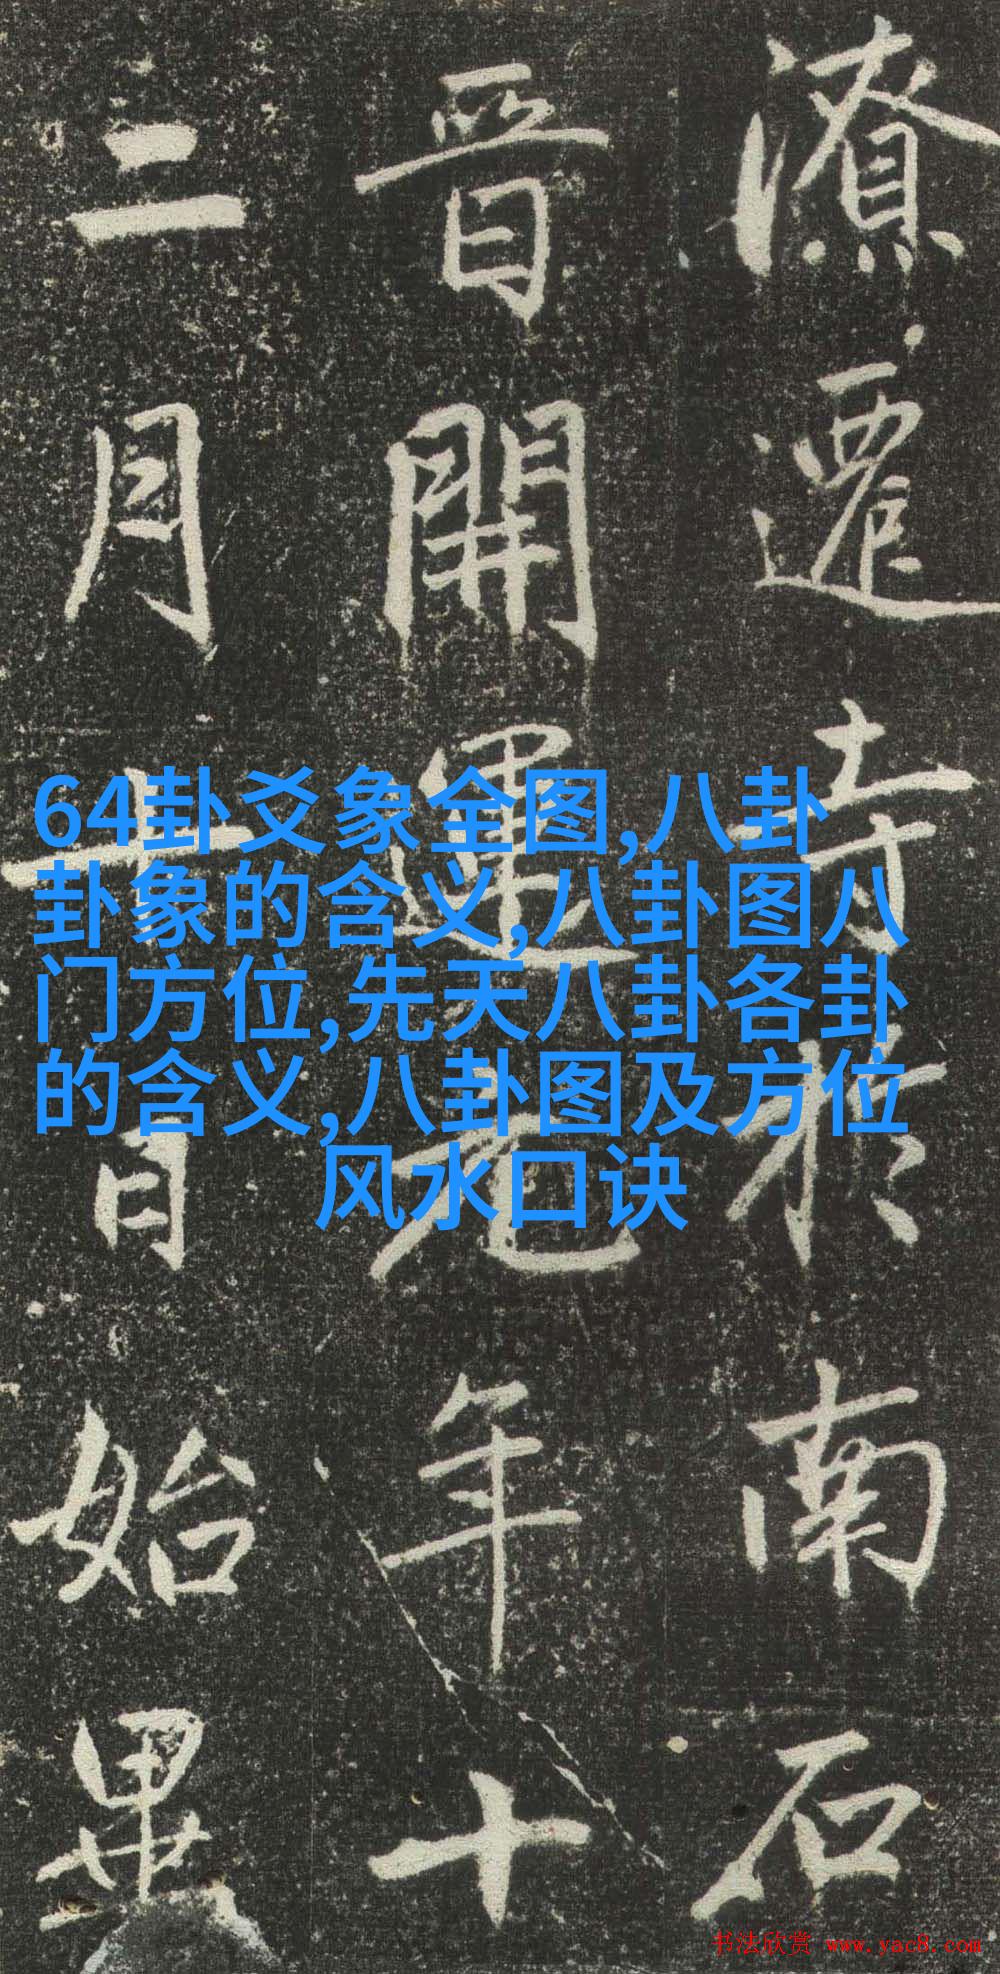 潦遷寺於南石
晉開運元年十
二月十日始畢
64卦爻象全图,八卦
卦象的含义,八卦图八
门方位,先天八卦各卦
的含义,八卦图及方位
风水口诀
书法欣赏 www.yac8.com